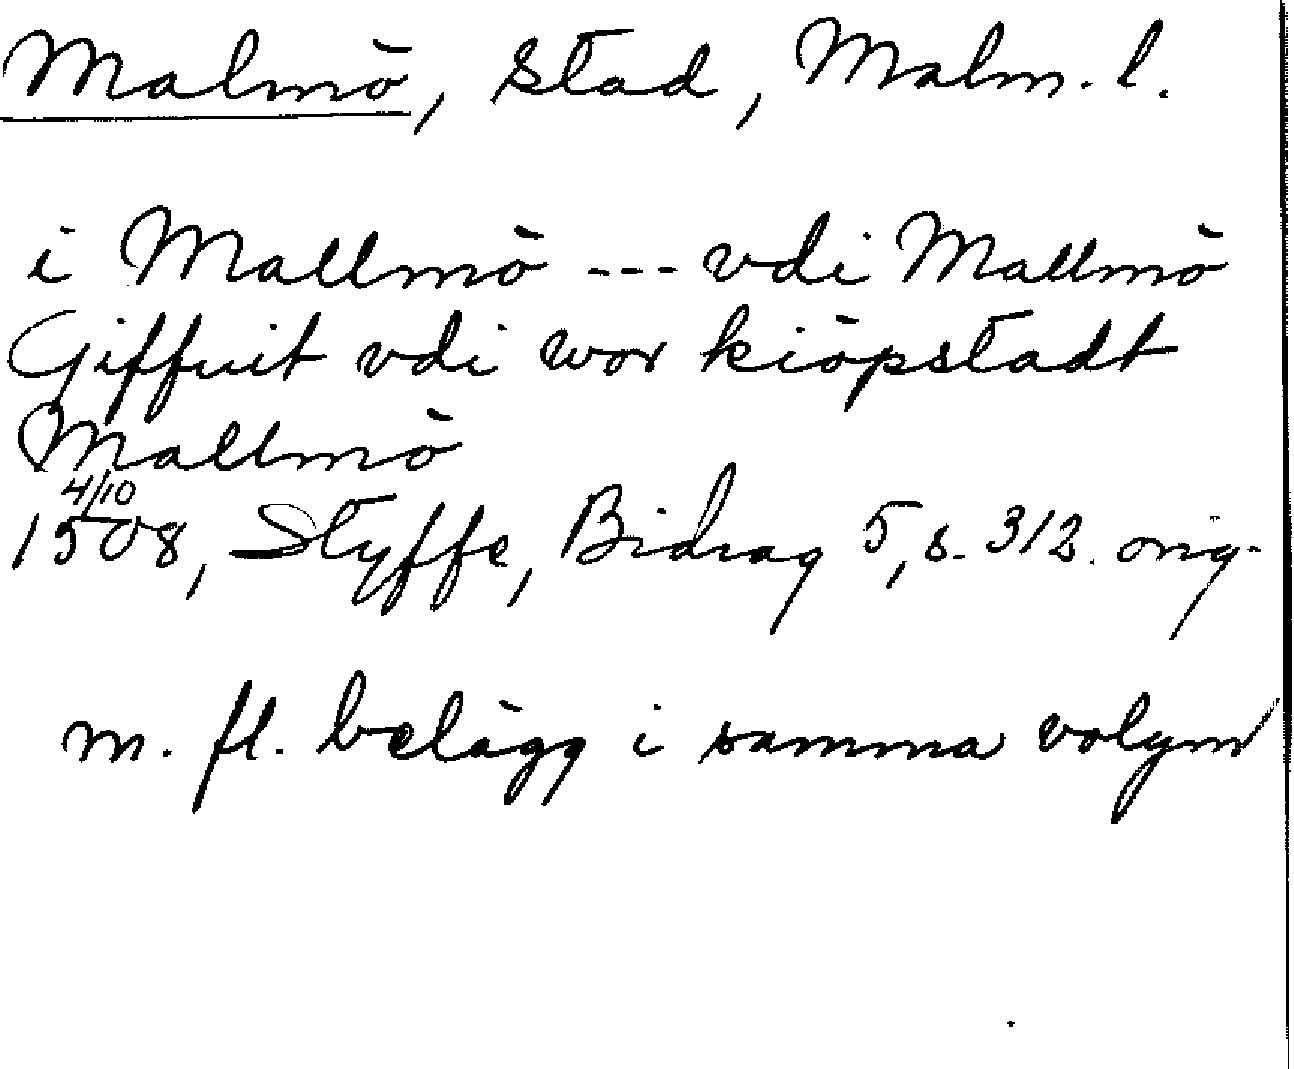 Malmö, stad, Malm. l.
i Mallmö --- vdi Mallmö
Giffuit vdi wor kiöpstadt
Mallmö
4/10
1508, Styffe, Bidrag 5, s. 312. orig.
m. fl. belägg i samma volym